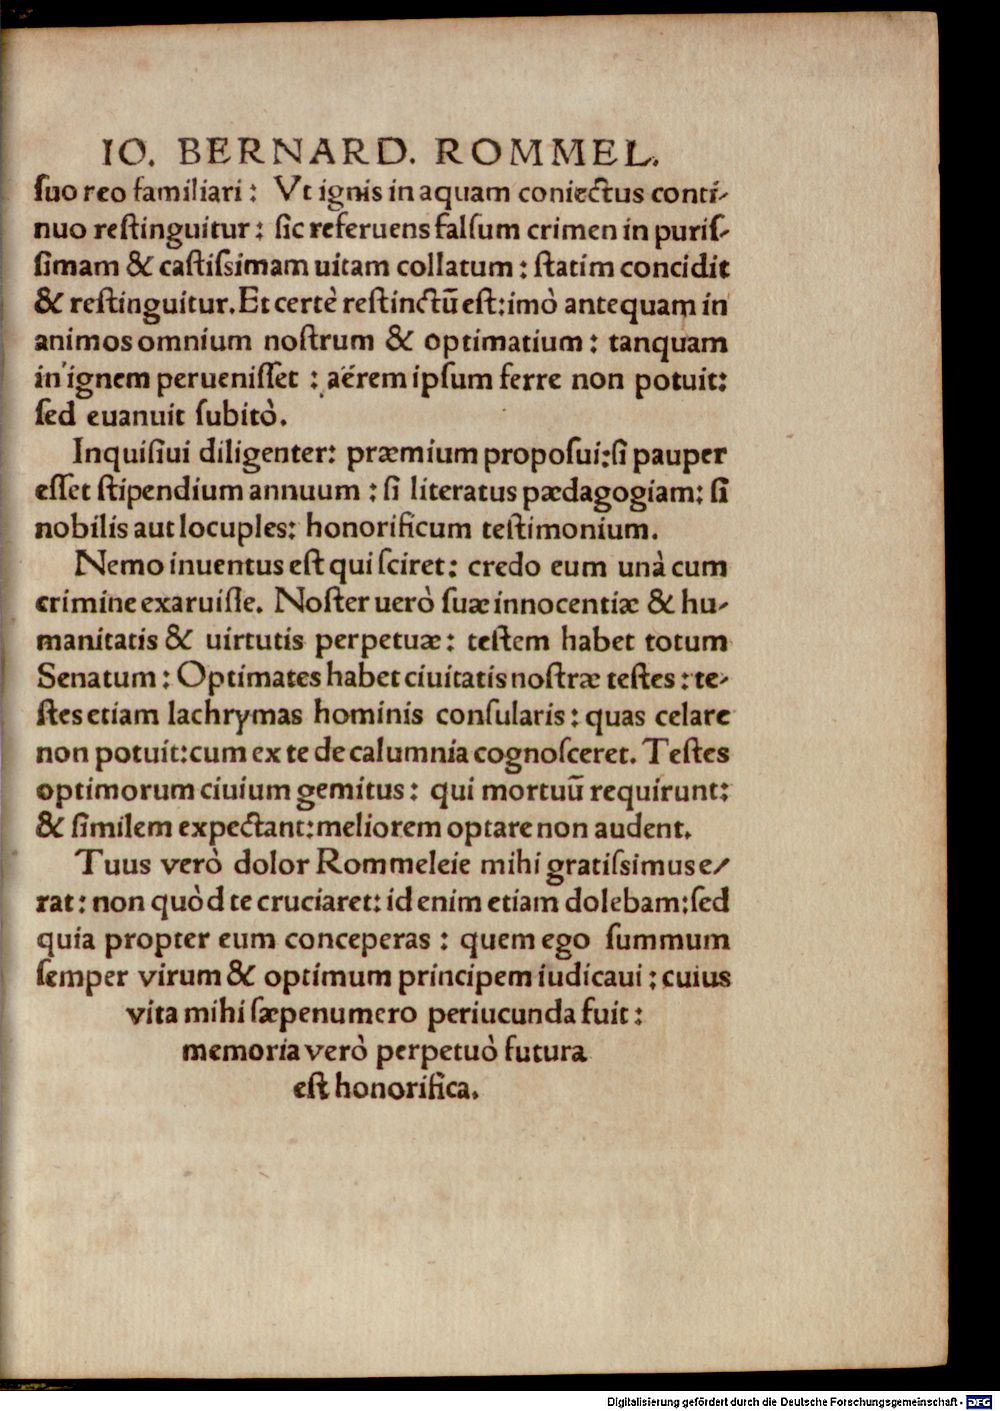 IO. BERNARD. ROMMEL.
ſuo reo familiari: Vt ignis in aquam coniectus conti-
nuo reſtinguitur: ſic referuens falſum crimen in puriſ-
ſimam & caſtiſsimam uitam collatum: ſtatim concidit
& reſtinguitur. Et certè reſtinctũ eſt: imò antequam in
animos omnium noſtrum & optimatium: tanquam
in ignem perueniſſet: aërem ipſum ferre non potuit:
ſed euanuit ſubitò.
Inquiſiui diligenter: præmium propoſui: ſi pauper
eſſet ſtipendium annuum: ſi literatus pædagogiam: ſi
nobilis aut locuples: honorificum teſtimonium.
Nemo inuentus eſt qui ſciret: credo eum unà cum
crimine exaruiſſe. Noſter uerò ſuæ innocentiæ & hu-
manitatis & uirtutis perpetuæ: teſtem habet totum
Senatum: Optimates habet ciuitatis noſtræ teſtes: te-
ſtes etiam lachrymas hominis conſularis: quas celare
non potuit: cum ex te de calumnia cognoſceret. Teſtes
optimorum ciuium gemitus: qui mortuũ requirunt:
& ſimilem expectant: meliorem optare non audent.
Tuus verò dolor Rommeleie mihi gratiſsimus e-
rat: non quòd te cruciaret: id enim etiam dolebam: ſed
quia propter eum conceperas: quem ego ſummum
ſemper virum & optimum principem iudicaui: cuius
vita mihi ſæpenumero periucunda fuit:
memoria verò perpetuò futura
eſt honorifica.
Digitalisierung gefördert durch die Deutsche Forschungsgemeinschaft - DFG